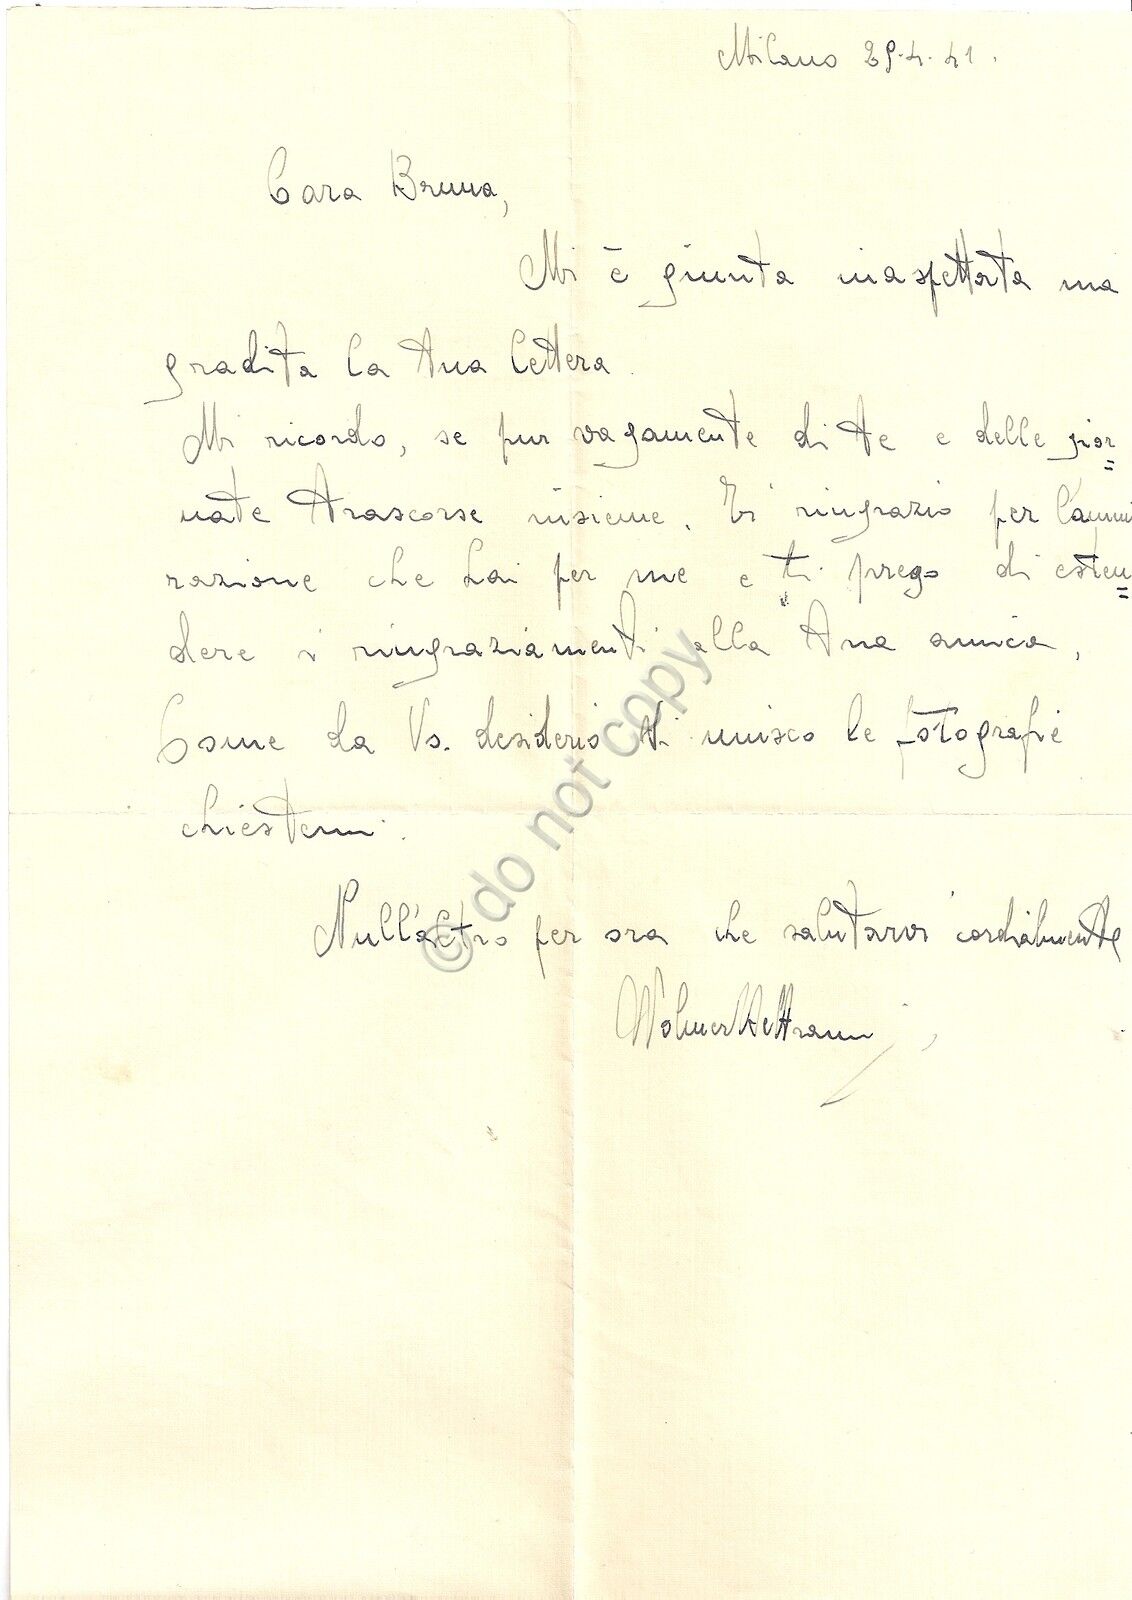 Milano 29.4.41.
Cara Bruna,
Mi è giunta inaspettata ma
gradita la tua lettera.
Mi ricordo, se pur vagamente di te e delle gior=
nate trascorse insieme. Ti ringrazio per l'ammi
razione che hai per me e ti prego di esten=
dere i ringraziamenti alla tua amica,
Come da Vs. desiderio Vi unisco le fotografie
chiestemi.
Null'altro per ora che salutarvi cordialmente
Wolmer Beltrami
© do not copy